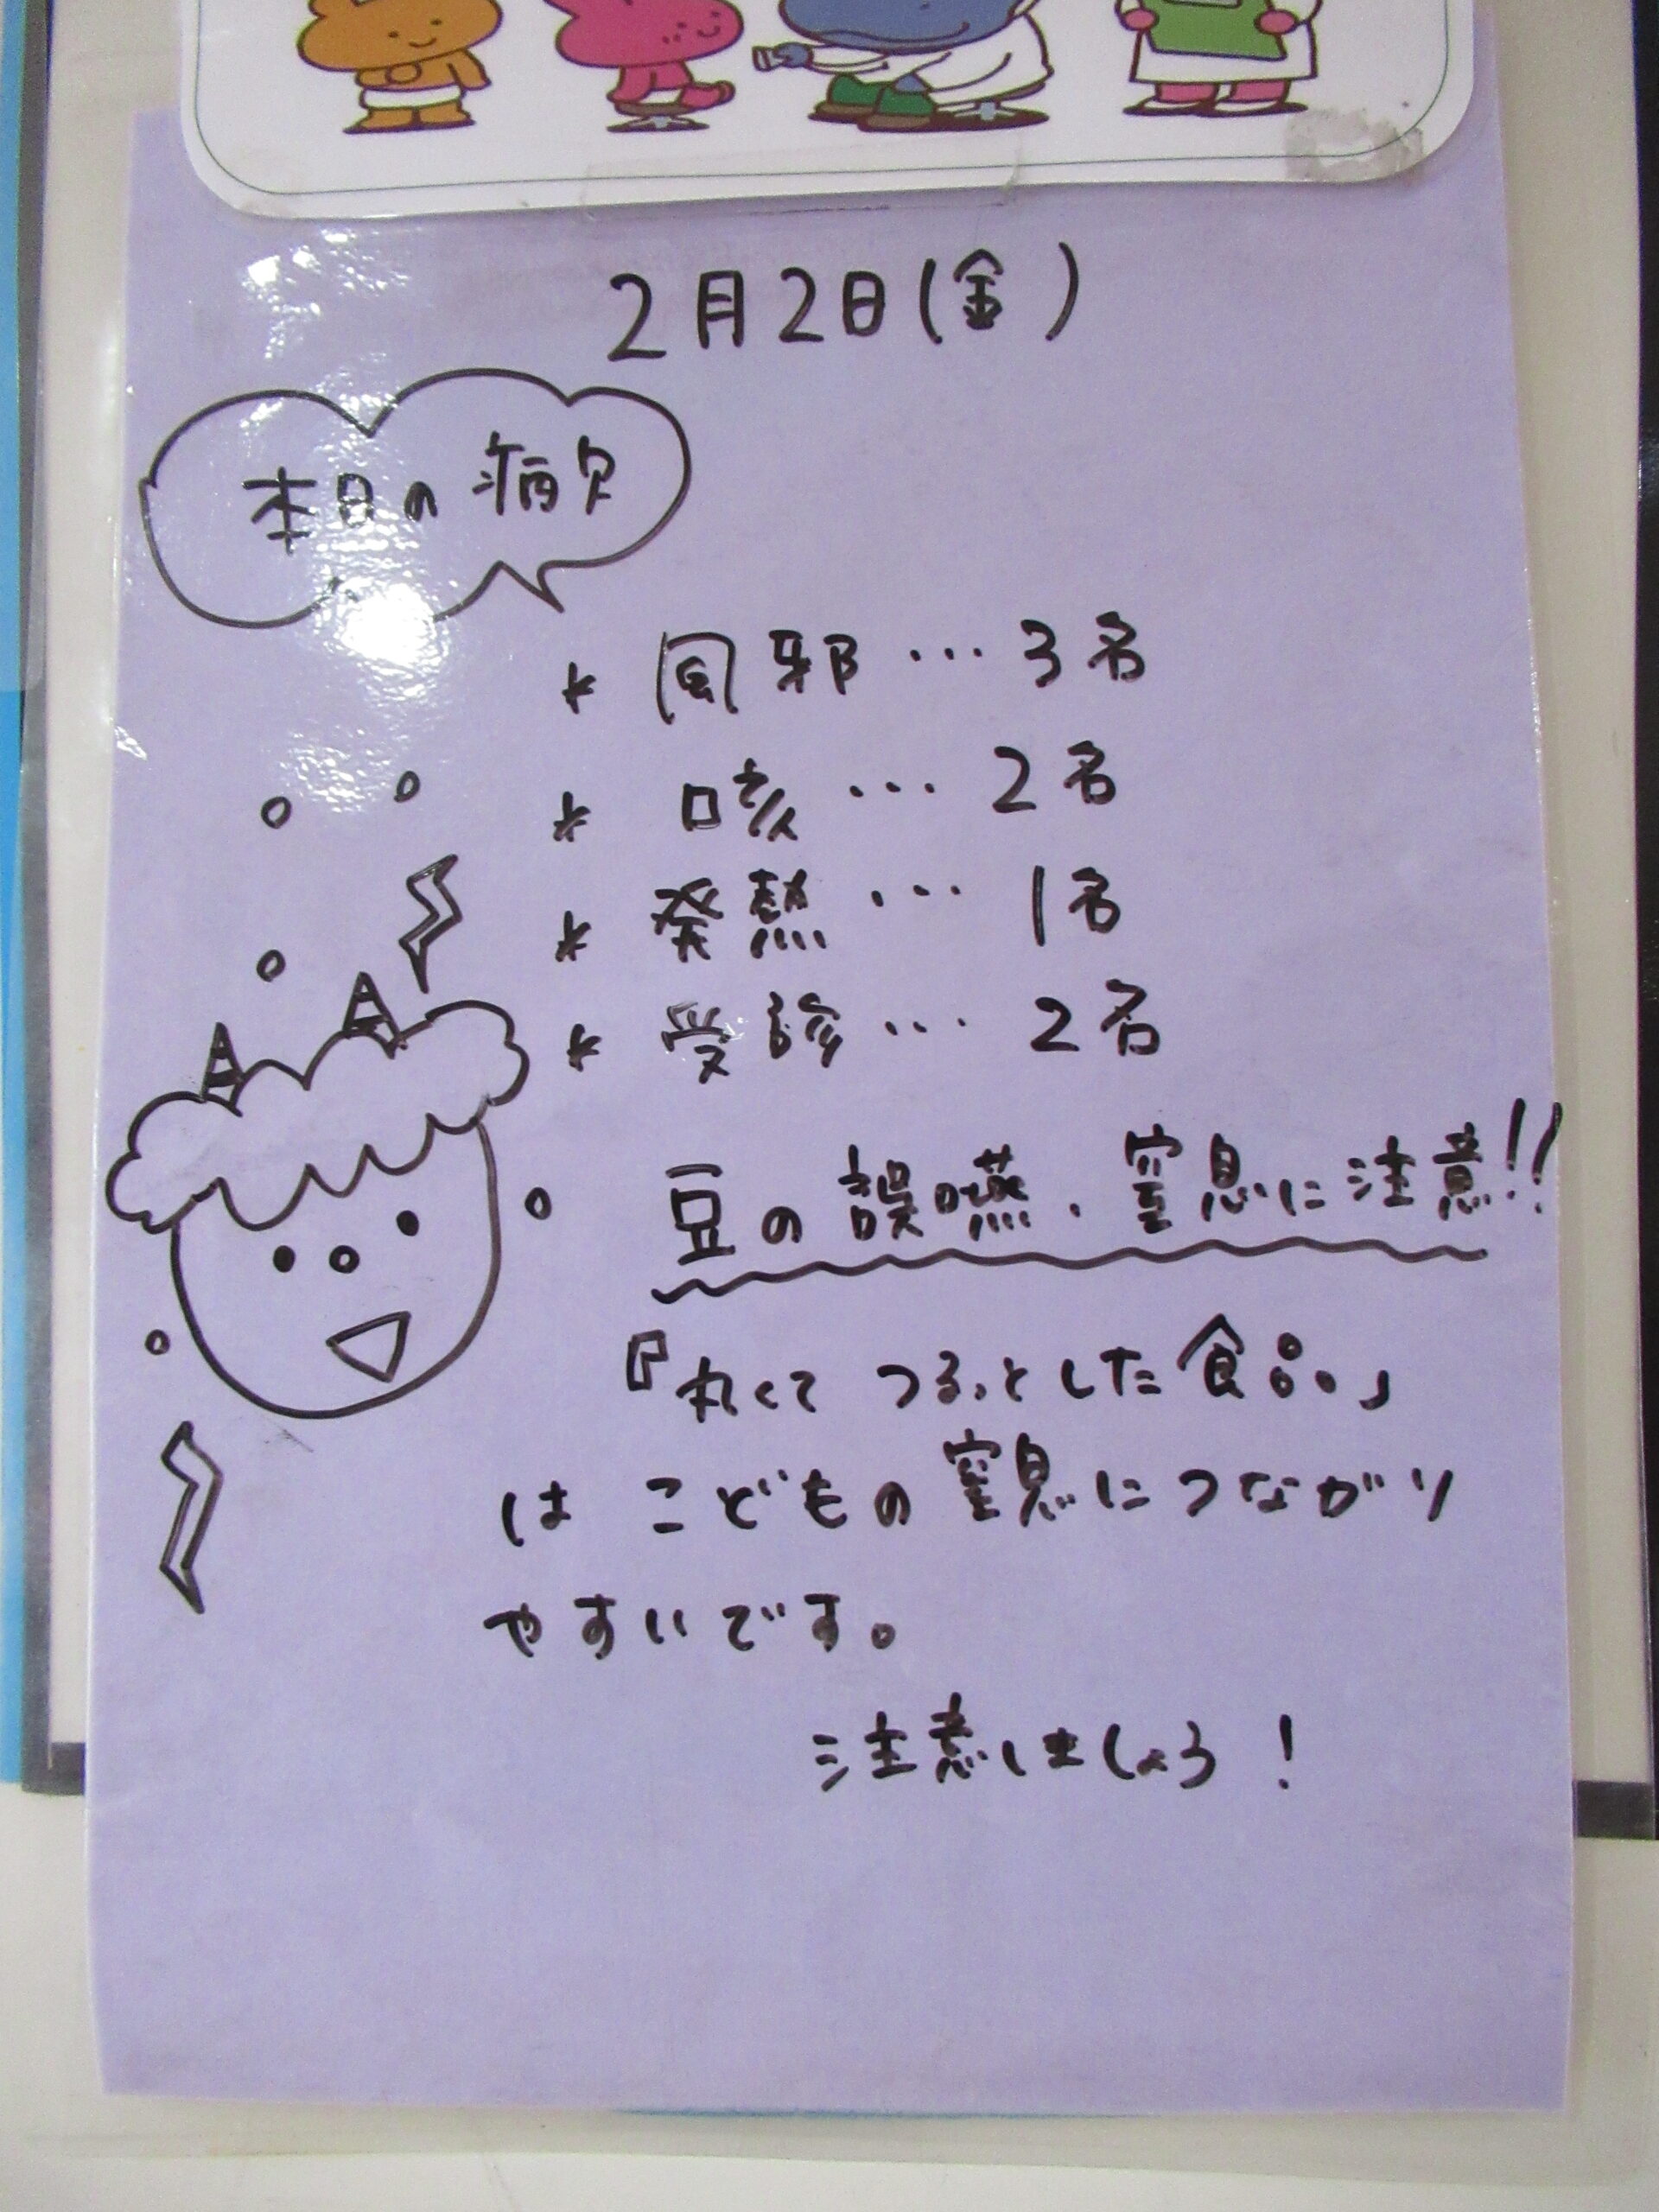 2月2日(金)
本日の病欠
* 風邪…3名
* 咳…2名
* 発熱…1名
* 受診…2名
豆の誤嚥・窒息に注意!!
『丸くてつるっとした食品。』
は こどもの窒息につながり
やすいです。
注意しましょう!